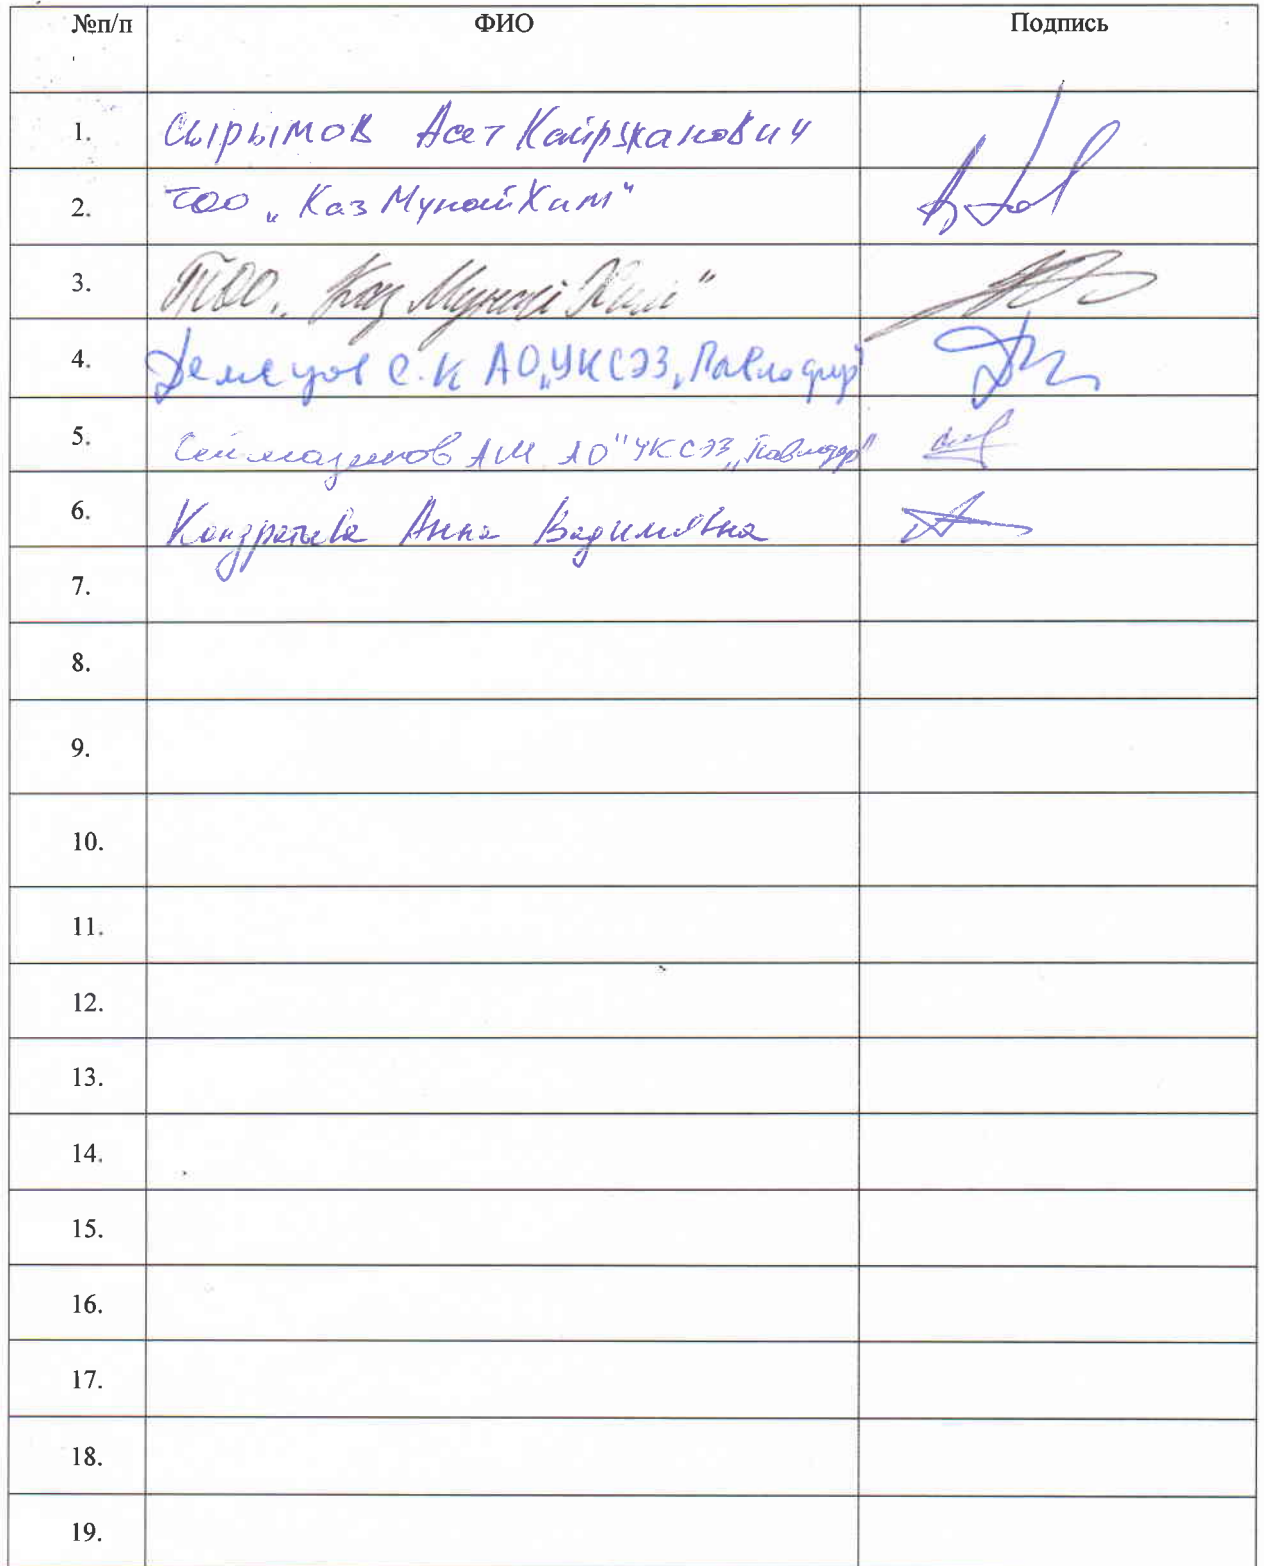 №п/п ФИО Подпись
1. Сырымов Асет
2. ТОО "КазМунайХим"
3. ТОО "Каз Мунай Хим"
4. С.К АО "УКСЭЗ "Павлодар"
5. АМ АО "УКСЭЗ "Павлодар"
6. Кондратьева Анна Вадимовна
7.
8.
9.
10.
11.
12.
13.
14.
15.
16.
17.
18.
19.